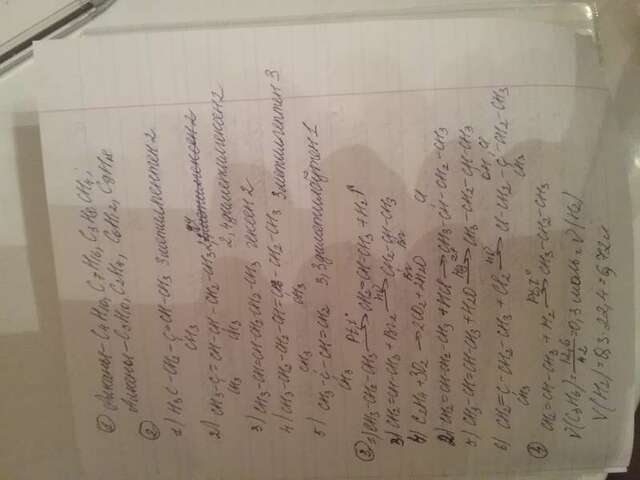 ① Алканы - C4H10, C7H16, C3H8, CH4;
Алкены - C5H10, C2H4, C6H12, C9H18
②
1) H3C-CH2-C=CH-CH3 3метилпентен2
CH3
2) CH3-C=CH-CH-CH2-CH3 2,4диметилгексен2
CH3 CH3 2,4диметилгексен2
3) CH3-CH=CH-CH2-CH2-CH3 гексен2
4) CH3-CH2-CH2-CH=C-CH2-CH3 3метилгептен3
CH3 CH3
5) CH3-C-CH=CH2 3,3диметилбутен1
CH3
③ 1) CH3-CH2-CH3 Pt,t° → CH2=CH-CH3+H2↑
3) CH2=CH-CH3+Br2 hν → CH2-CH-CH3
Br Br
4) C2H4+3O2 → 2CO2+2H2O
Cl
2) CH2=CH-CH2-CH3+HCl → CH3-CH-CH2-CH3
5) CH3-CH=CH-CH3+H2O Hg2+ → CH3-CH2-CH-CH3
OH Cl
6) CH2=C-CH2-CH3+Cl2 hν → Cl-CH2-C-CH2-CH3
CH3 CH3
④ CH2=CH-CH3+H2 Pt,t° → CH3-CH2-CH3
ν(C3H6)=12,6/42=0,3моль=ν(H2)
V(H2)=0,3·22,4=6,72л